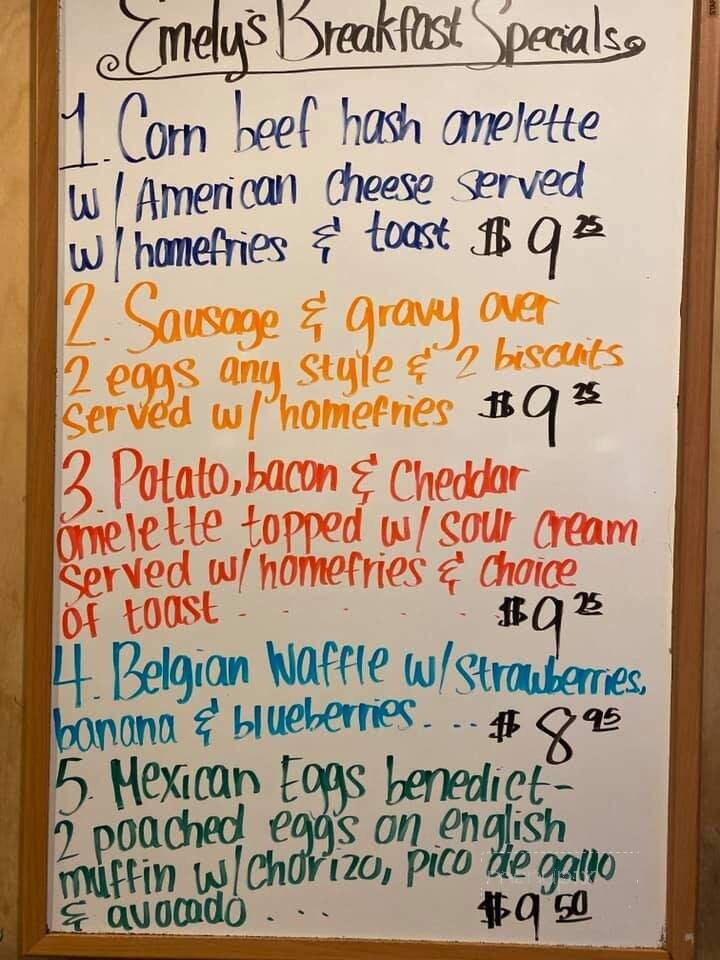 Emely's Breakfast Specials
1. Corn beef hash omelette
w/American cheese served
w/homefries & toast $9 25
2. Sausage & gravy over
2 eggs any style & 2 biscuits
served w/homefries $9 25
3. Potato, bacon & Cheddar
omelette topped w/ sour cream
served w/homefries & choice
of toast . . . . . . $9 25
4. Belgian Waffle w/strawberries,
banana & blueberries. . . . $8 95
5. Mexican Eggs benedict-
2 poached eggs on english
muffin w/chorizo, pico de gallo
& avocado . . . . $9 50